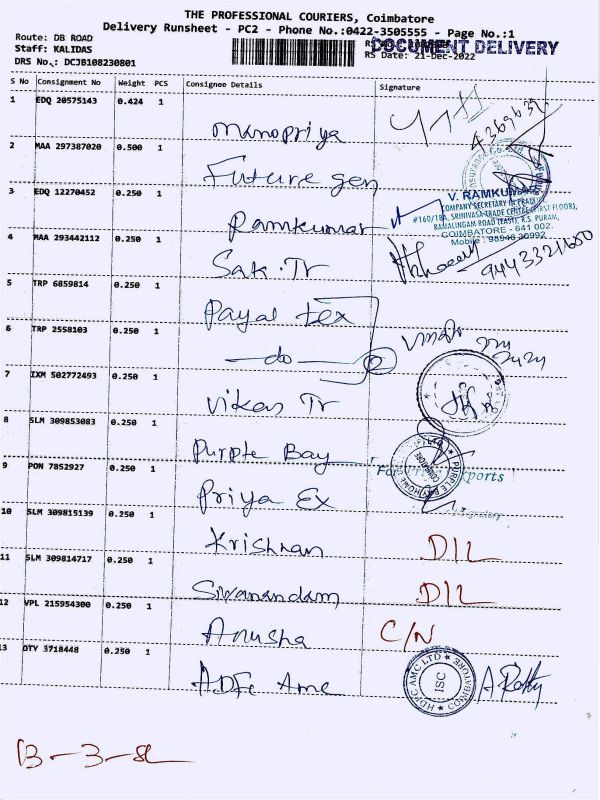 THE PROFESSIONAL COURIERS, Coimbatore
Delivery Runsheet - PC2 - Phone No.:0422-3505555 - Page No.:1
Route: DB ROAD
DOCUMENT DELIVERY
Staff: KALIDAS
RS Date: 21-Dec-2022
DRS No.: DCJB108230801
S No Consignment No Weight PCS Consignee Details Signature
1 EDQ 20575143 0.424 1 Manopriya
2 MAA 297387020 0.500 1 Future gen
3 EDQ 12270452 0.250 1 Ramkumar
V. RAMKUMAR
COMPANY SECRETARY IN PRACTICE
#160/18A, SRINIVASA TRADE CENTRE (FIRST FLOOR),
RAMALINGAM ROAD (EAST), R.S. PURAM,
COIMBATORE - 641 002.
Mobile : 98946 30992
4 MAA 293442112 0.250 1 Sak. Tr
5 TRP 6859814 0.250 1 Payal tex
6 TRP 2558103 0.250 1 do
7 IXM 502772493 0.250 1 Vikas Tr
8 SLM 309853083 0.250 1 Purple Bay
PURPLE BAY
COIMBATORE
9 PON 7852927 0.250 1 Priya Ex
For Exports
10 SLM 309815139 0.250 1 Krishnan DIL
11 SLM 309814717 0.250 1 Sivanandam DIL
12 VPL 215954300 0.250 1 Anusha C/N
13 OTY 3718448 0.250 1 ADFc Amc
HDFC AMC LTD
ISC
COIMBATORE
13-3-SL